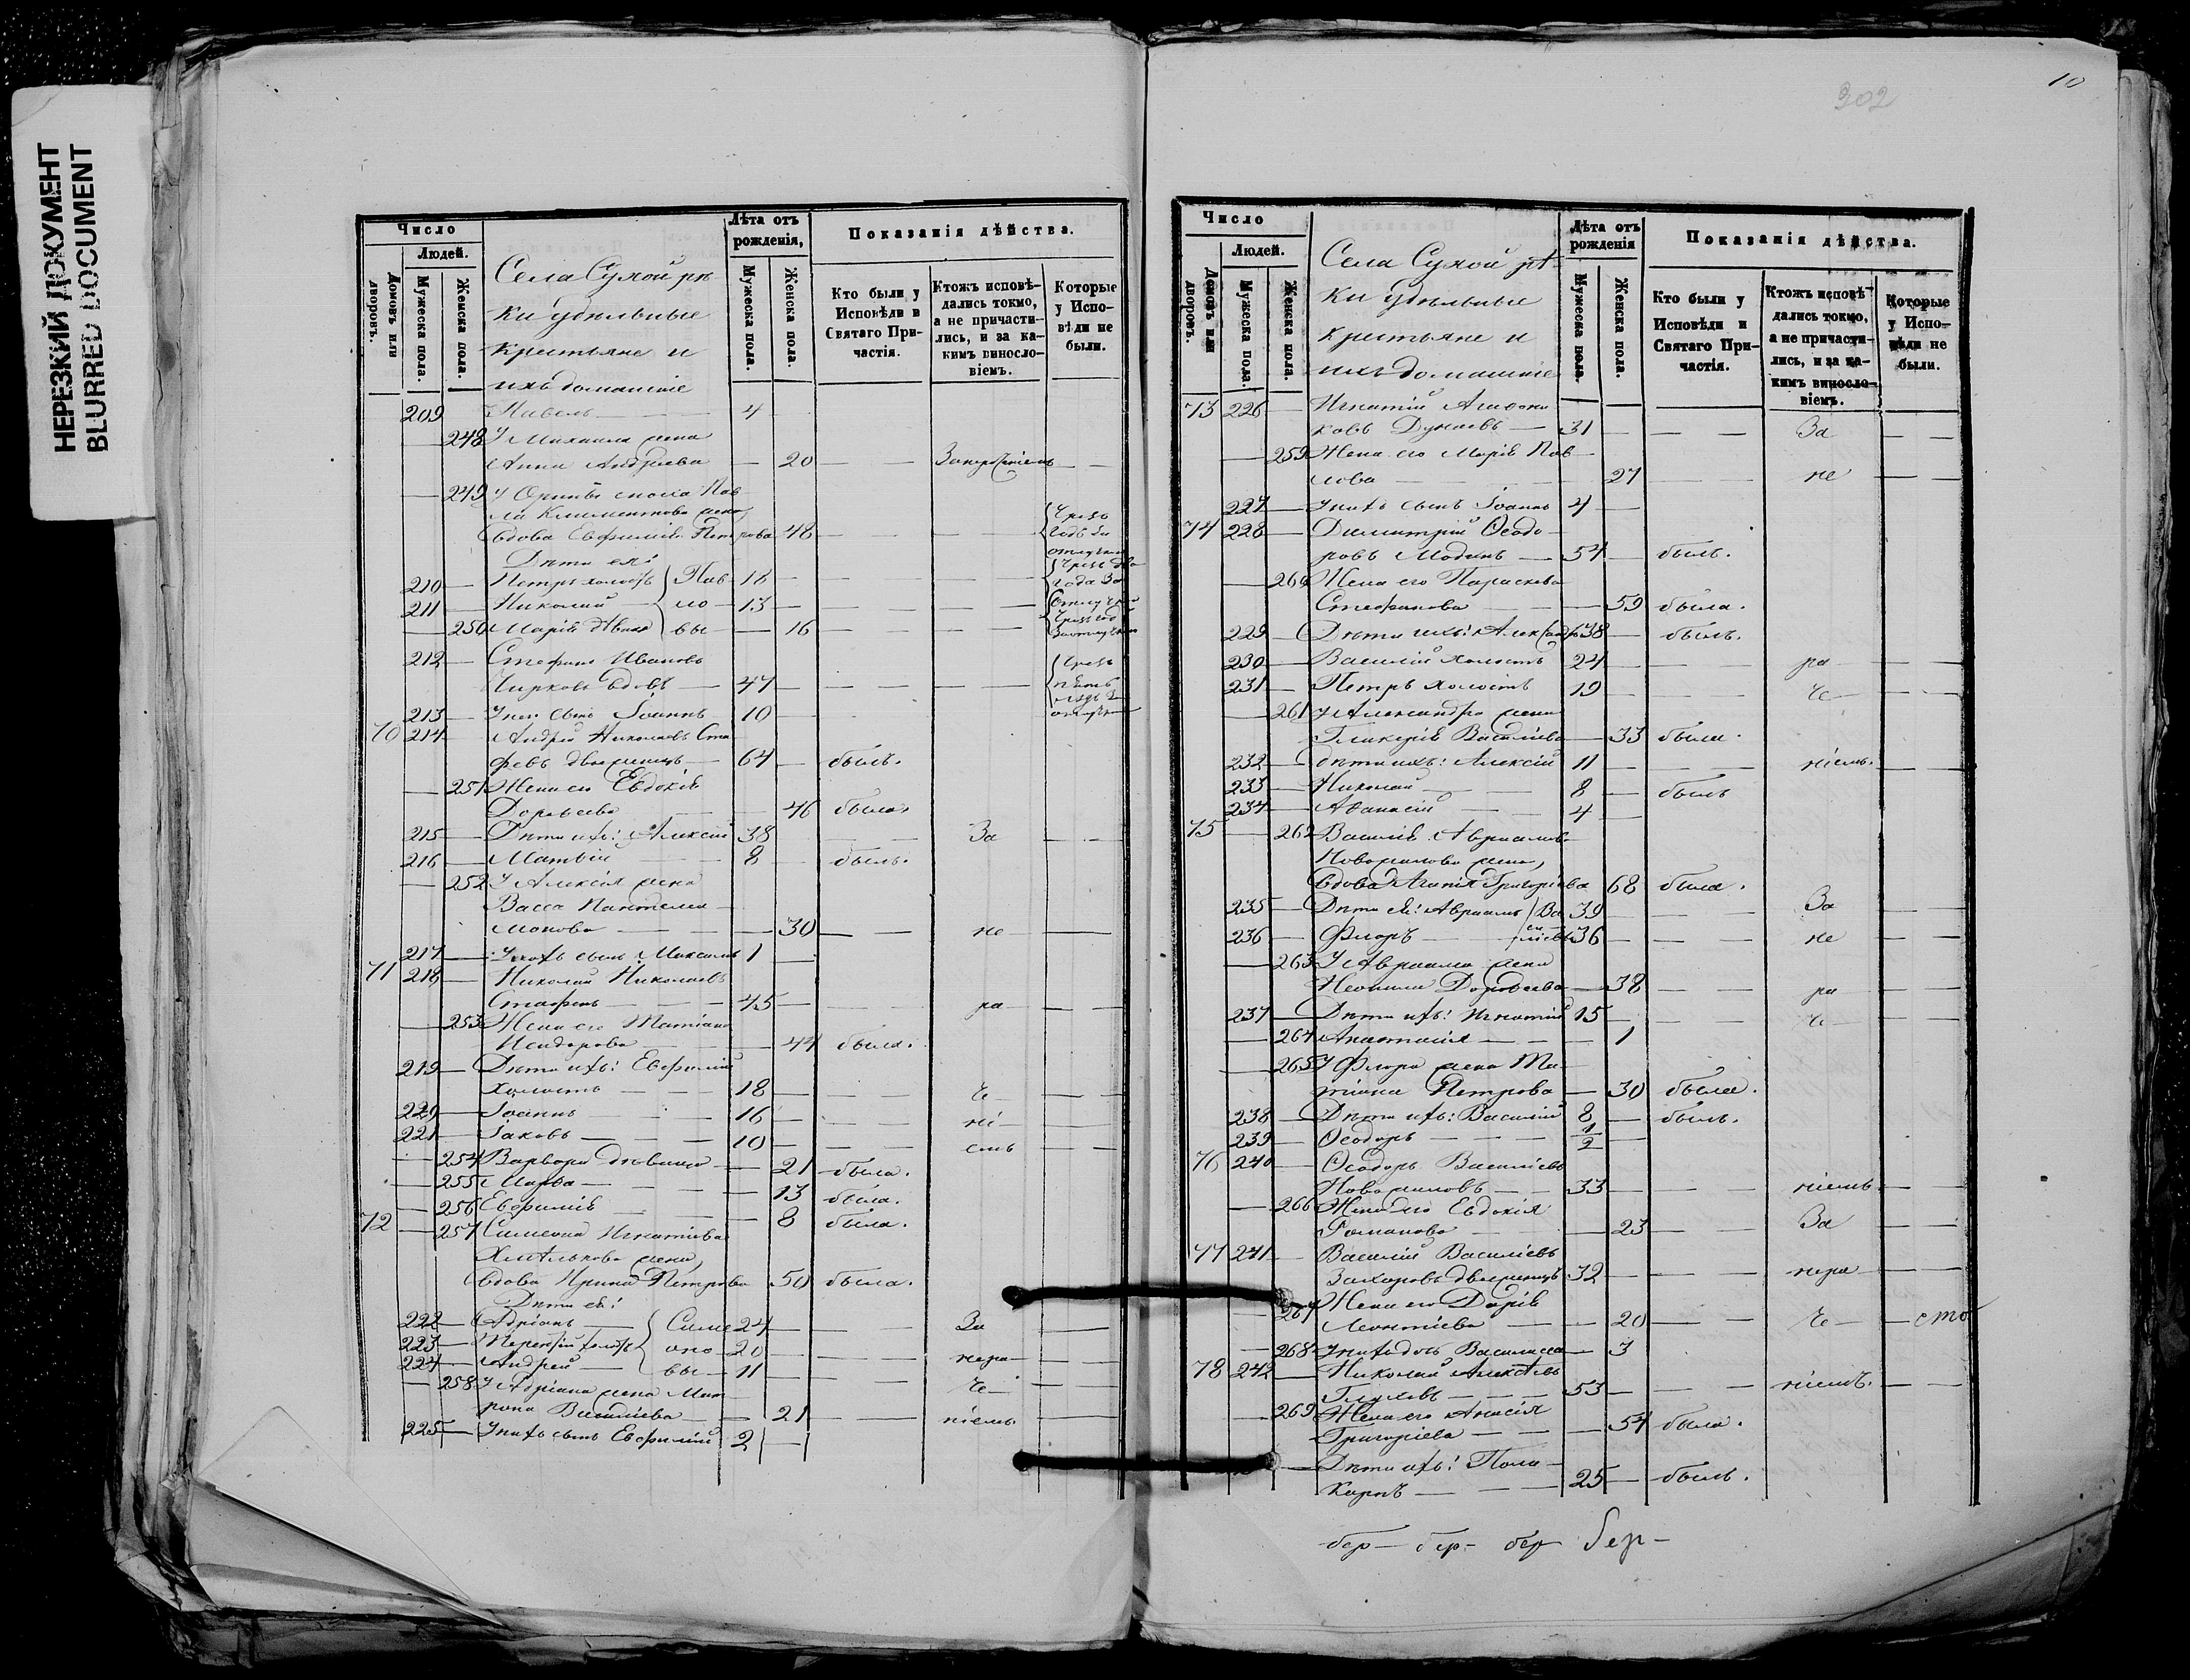 НЕРЕЗКИЙ ДОКУМЕНТ
BLURRED DOCUMENT
Число
Людей.
Домовъ или дворовъ.
Мужеска пола.
Женска пола.
Села Сухой рѣ-
ки удѣльные
крестьяне и
ихъ домашніе
Лѣта отъ рожденія,
Мужеска пола.
Женска пола.
Показанія дѣйства.
Кто были у Исповѣди и Святаго При-
частія.
Ктожъ исповѣ-
дались токмо,
а не причасти-
лись, и за ка-
кимъ винносло-
віемъ.
Которые
у Испо-
вѣди не
были.
209 — Павелъ — 4
— 248 У Михаила жена
Анна Андреева — 20 — —
— 249 У
жена
вдова Евфимія Петрова 48 — — —
Дѣти ея:
210 — Петръ холостъ Пав 18 — —
211 — Николай — ло 13 — —
— 250 Марія вы — 16 — —
212 — Стефанъ Ивановъ
вдовъ — 47 — — —
213 — У него сынъ Іоаннъ 10
70 214 — Андрей Николаевъ Ста
феевъ двоеженецъ — 64 — былъ.
— 251 Жена его Евдокія
Дороѳеева — 46 была.
215 — Дѣти ихъ: Алексій 38 — За — —
216 — Матвій — 8 — былъ.
— 252 У Алексія жена
Васса Пантелеи
монова — 30 — — не —
217 — У нихъ сынъ Максимъ 1 —
71 218 — Николай Николаевъ
45 — — — ра — —
— 253 Жена его Татіана
Исидорова — 44 была.
219 — Дѣти ихъ: Евфимій
холостъ — 18 — — — че — —
220 — Іоаннъ — 16 — — — ні — —
221 — Іаковъ — 10 — — — емъ — —
— 254 Варвара дѣвица — 21 была.
— 255 Марѳа — 13 была.
— 256 Евфимія — 8 была.
72 — 257 Симеона Игнатіева
Хмѣлькова жена,
вдова Ирина Петрова 50 была.
Дѣти ея:
222 — Адріанъ — Симе 24 — — За —
223 — Терентій холостъ оно 20 — — нера —
224 — Андрей — вы 11 — — че —
— 258 У Адріана жена Мат
рона Василіева — 21 — ніемъ. —
225 — У нихъ сынъ Евфимій 2 —
302
10
Число
Людей.
Домовъ или дворовъ.
Мужеска пола.
Женска пола.
Села Сухой рѣ-
ки удѣльные
крестьяне и
ихъ домашніе
Лѣта отъ рожденія
Мужеска пола.
Женска пола.
Показанія дѣйства.
Кто были у Исповѣди и Святаго При-
частія.
Ктожъ исповѣ-
дались токмо,
а не причасти-
лись, и за ка-
кимъ винносло-
віемъ.
Которые
у Испо-
вѣди не
были.
73 226 — Игнатій Агаѳони
ковъ Дунаевъ — 31 — — — За — —
— 259 Жена его Марія Пав
лова — 27 — — не — —
227 — У нихъ сынъ Іоаннъ 4 —
74 228 — Димитрій Ѳеодо
ровъ — 54 — былъ.
— 260 Жена его Параскева
Стефанова — 59 была.
229 — Дѣти ихъ: Александръ 38 — былъ.
230 — Василій холостъ 24 — — — ра — —
231 — Петръ холостъ 19 — — — че — —
— 261 У Александра жена
Гликерія Василіева — 33 была.
232 — Дѣти ихъ: Алексій 11 — — ніемъ. —
233 — Николай — 8 — былъ
234 — Аѳанасій — 4 —
75 — 262 Василія Авраамова
жена,
вдова Агапія Григоріева 68 была.
235 — Дѣти ея: Авраамъ Ва 39 — — За —
236 — Флоръ — си ліевы 36 — — не — —
— 263 У Авраама жена
Неонила Дороѳеева — 38 — — ра — —
237 — Дѣти ихъ: Игнатій 15 — — че — —
— 264 Анастасія — 1
— 265 У Флора жена Та
тіана Петрова — 30 была.
238 — Дѣти ихъ: Василій 8 — былъ.
239 — Ѳеодоръ — 1/2 —
76 240 — Ѳеодоръ Василіевъ
33 — — — ніемъ — —
— 266 Жена его Евдокія
Романова — 23 — — За — —
77 241 — Василій Василіевъ
Захаровъ двоеженецъ 32 — — — нера — —
— 267 Жена его Дарія
Леонтіева — 20 — — че —
— 268 У нихъ дочь Василисса — 3
78 242 — Николай Алексѣевъ
Глуховъ — 53 — — — ніемъ. — —
— 269 Жена его Анисія
Григоріева — 54 была.
— Дѣти ихъ: Поли
карпъ — 25 — былъ.
бер — бер — бер бер —